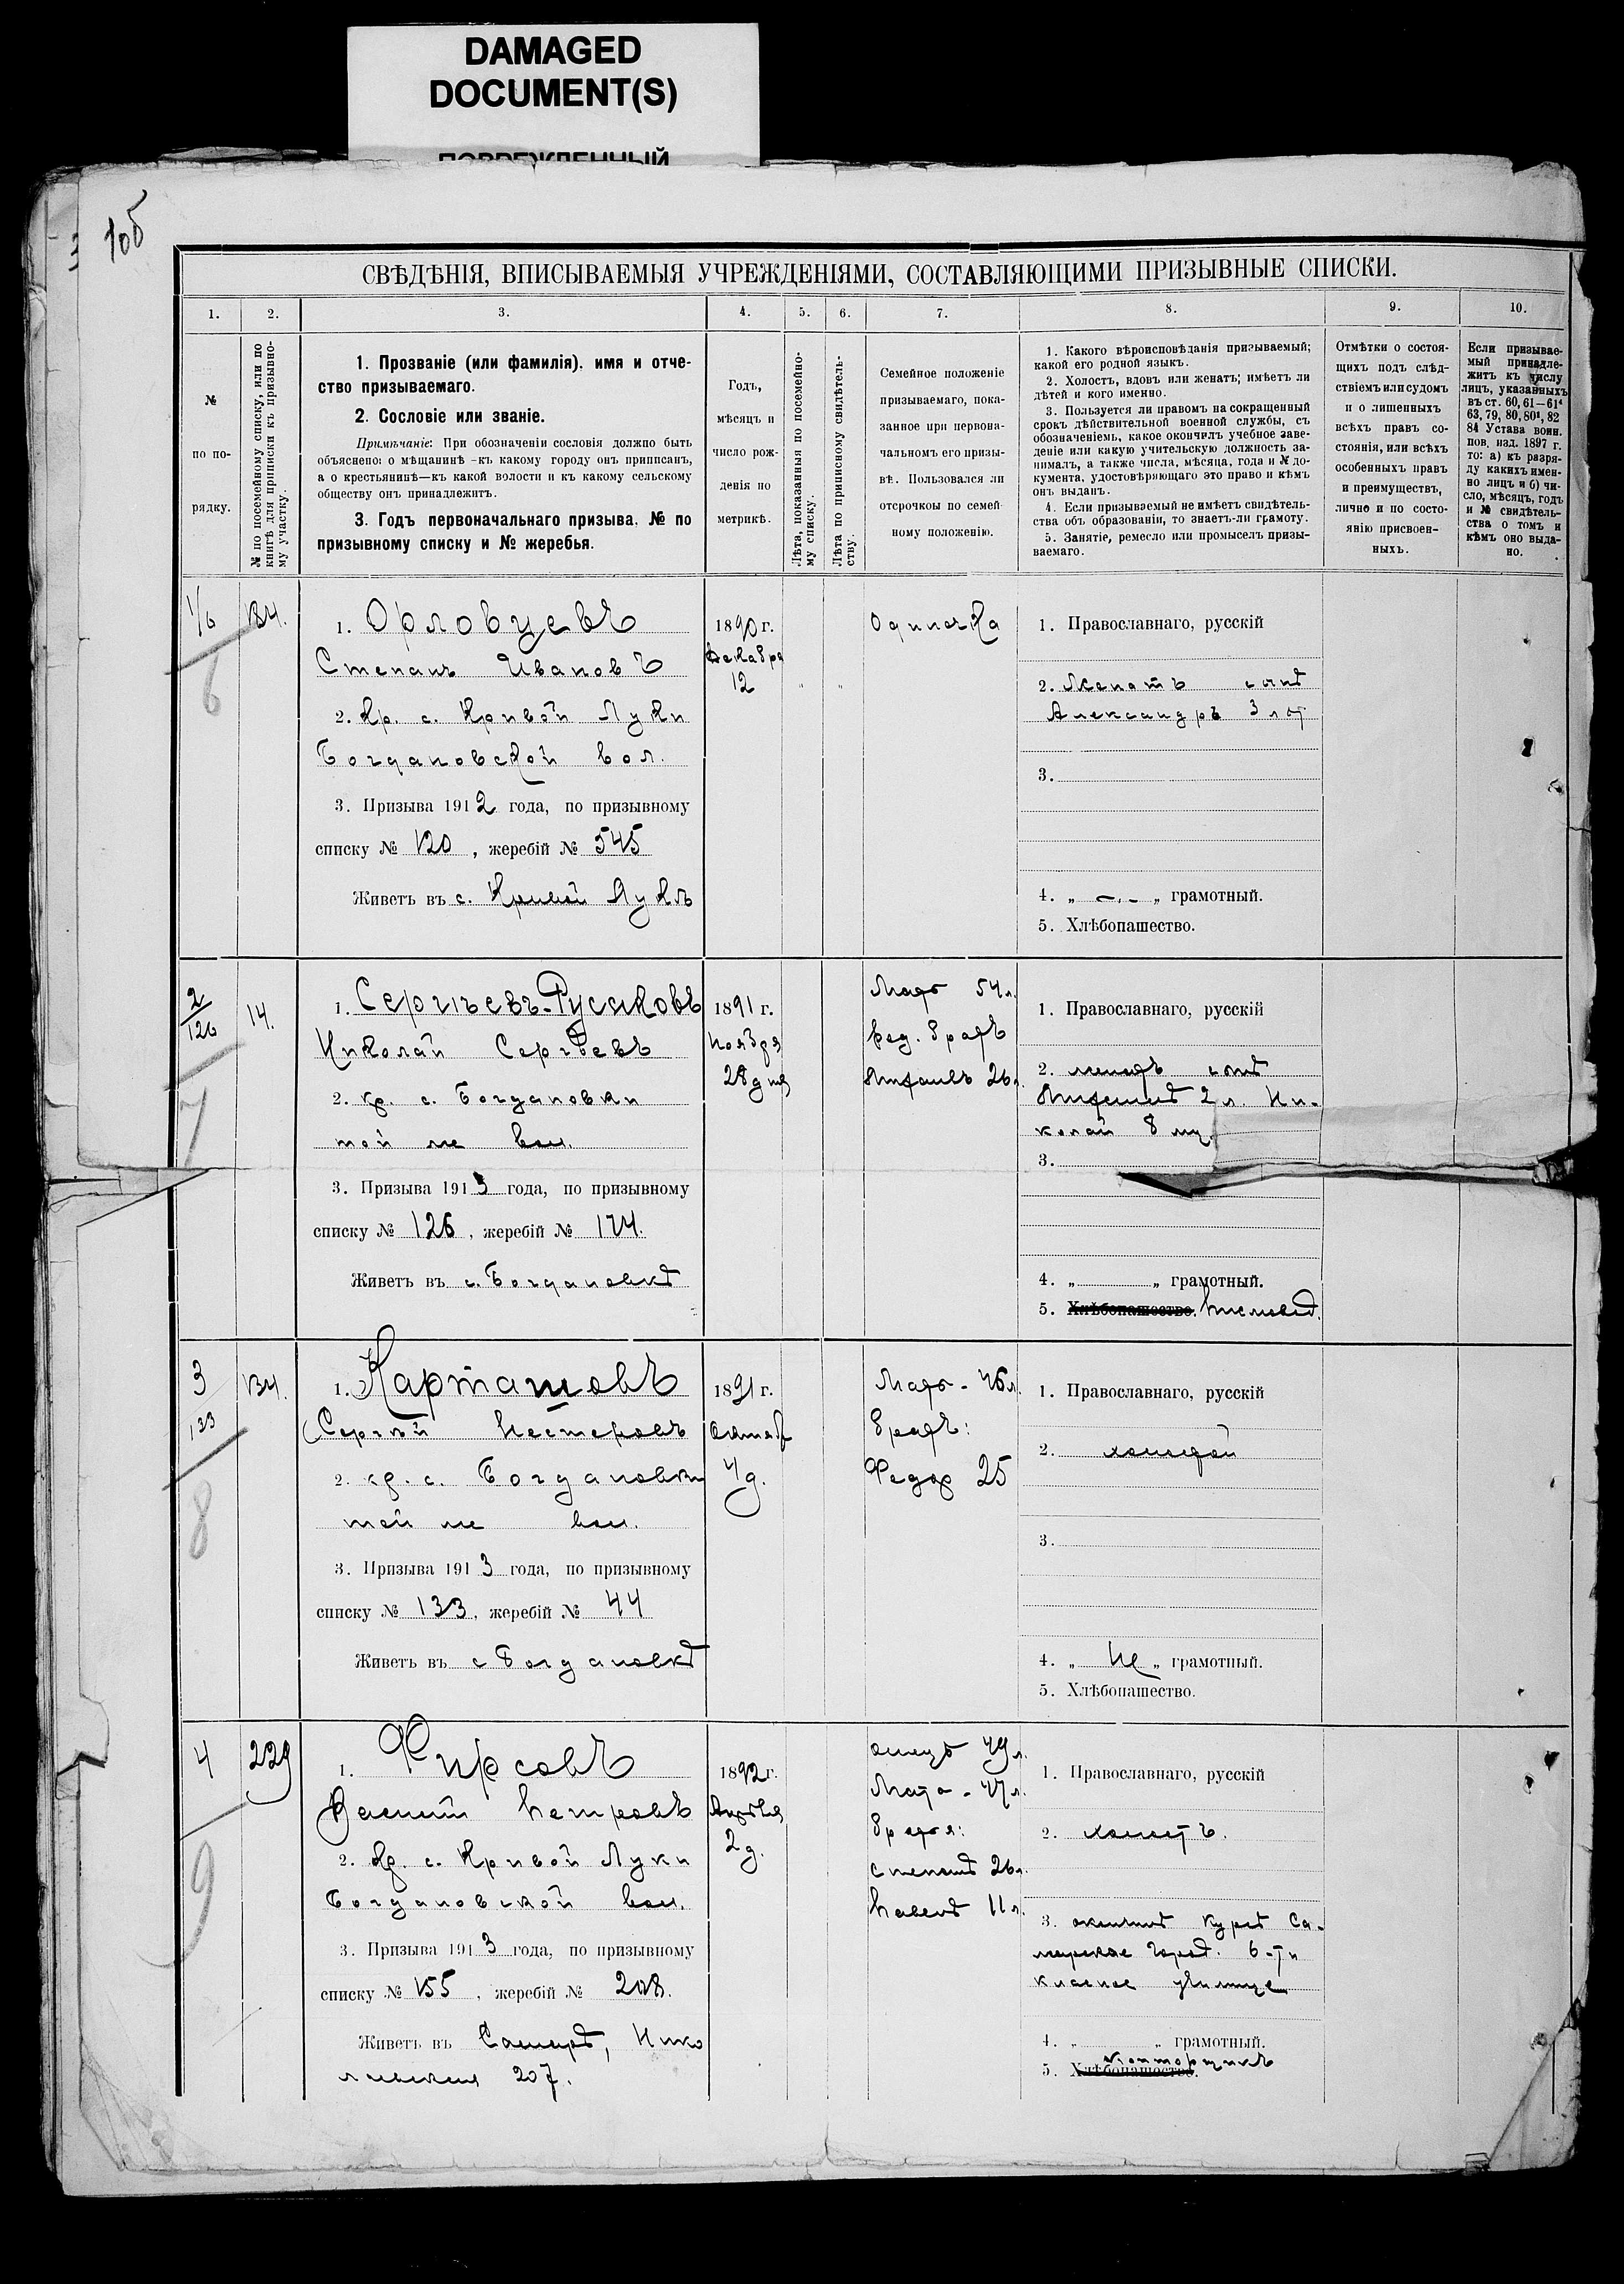 DAMAGED
DOCUMENT(S)
ПОВРЕЖДЕННЫЙ
105
СВѢДѢНІЯ, ВПИСЫВАЕМЫЯ УЧРЕЖДЕНІЯМИ, СОСТАВЛЯЮЩИМИ ПРИЗЫВНЫЕ СПИСКИ.
1. 2. 3. 4. 5. 6. 7. 8. 9. 10.
№
по по-
рядку.
№ по посемейному списку, или по
книгѣ для приписки къ призывно-
му участку.
1. Прозваніе (или фамилія). имя и отче-
ство призываемаго.
2. Сословіе или званіе.
Примѣчаніе: При обозначеніи сословія должно быть
объяснено: о мѣщанинѣ –къ какому городу онъ приписанъ,
а о крестьянинѣ—къ какой волости и къ какому сельскому
обществу онъ принадлежитъ.
3. Годъ первоначальнаго призыва. № по
призывному списку и № жеребья.
Годъ,
мѣсяцъ и
число рож-
денія по
метрикѣ.
Лѣта, показанныя по посемейно-
му списку.
Лѣта по приписному свидѣтель-
ству.
Семейное положеніе
призываемаго, пока-
занное при первона-
чальномъ его призы-
вѣ. Пользовался ли
отсрочкою по семей-
ному положенію.
1. Какого вѣроисповѣданія призываемый;
какой его родной языкъ.
2. Холостъ, вдовъ или женатъ; имѣетъ ли
дѣтей и кого именно.
3. Пользуется ли правомъ на сокращенный
срокъ дѣйствительной военной службы, съ
обозначеніемъ, какое окончилъ учебное заве-
деніе или какую учительскую должность за-
нималъ, а также числа, мѣсяца, года и № до-
кумента, удостовѣряющаго это право и кѣмъ
онъ выданъ.
4. Если призываемый не имѣетъ свидѣтель-
ства объ образованіи, то знаетъ-ли грамоту.
5. Занятіе, ремесло или промыселъ призы-
ваемаго.
Отмѣтки о состоя-
щихъ подъ слѣд-
ствіемъ или судомъ
и о лишенныхъ
всѣхъ правъ со-
стоянія, или всѣхъ
особенныхъ правъ
и преимуществъ,
лично и по состо-
янію присвоен-
ныхъ.
Если призывае-
мый принадле-
житъ къ числу
лицъ, указанныхъ
въ ст. 60, 61—61⁴
63, 79, 80, 80¹, 82
84 Устава воин.
пов. изд. 1897 г.
то: а) къ разря-
ду какихъ имен-
но лицъ и б) чи-
сло, мѣсяцъ, годъ
и № свидѣтель-
ства о томъ и
кѣмъ оно выда-
но.
1/6
6
134.
1. Орловцевъ
Степанъ Ивановъ
2. Кр. с. Кривой Луки
Богдановской вол.
3. Призыва 1912 года, по призывному
списку № 120, жеребій № 545
Живетъ въ с. Кривой Лукѣ
1890 г.
Декабря
12
" "
Одиночка
1. Православнаго, русскій
2. Женатъ сынъ
Александръ 3 лѣт
3.
4. „ —.— „ грамотный.
5. Хлѣбопашество.
2/126
7
14.
1. Сергѣевъ-Русяковъ
Николай Сергѣевъ
2. кр. с. Богдановки
той же вол.
3. Призыва 1913 года, по призывному
списку № 126, жеребій № 174.
Живетъ въ с. Богдановкѣ
1891 г.
Ноября
28 дня
Мать 54 л.
1. Православнаго, русскій
2. женатъ сынъ
2 л. Ни-
колай 8 мц.
3.
4. „ „ грамотный.
5. Хлѣбопашество.
3
133
8
134.
1. Карташовъ
Сергѣй Нестеровъ
2. кр. с. Богдановки
той же вол.
3. Призыва 1913 года, по призывному
списку № 133, жеребій № 44
Живетъ въ с Богдановкѣ
1891 г.
Октяб
4 д.
Мать - 46 л.
братъ:
Федор 25
1. Православнаго, русскій
2. холостой
3.
4. „ Не „ грамотный.
5. Хлѣбопашество.
4
9
229
1. Фирсовъ
Василій Петровъ
2. Кр. с. Кривой Луки
Богдановской вол.
3. Призыва 1913 года, по призывному
списку № 155, жеребій № 208.
Живетъ въ Самарѣ, Нико
лаевская 207.
1892 г.
Апрѣля
2 д.
отецъ 49 л.
Мать - 47 л.
братья:
Степанъ 26 л.
Павелъ 11 л.
1. Православнаго, русскій
2. холостъ.
3. окончилъ курсъ Са-
марское город. 6-ти
класное училище
4. „ „ грамотный.
конторщикъ
5. Хлѣбопашество.